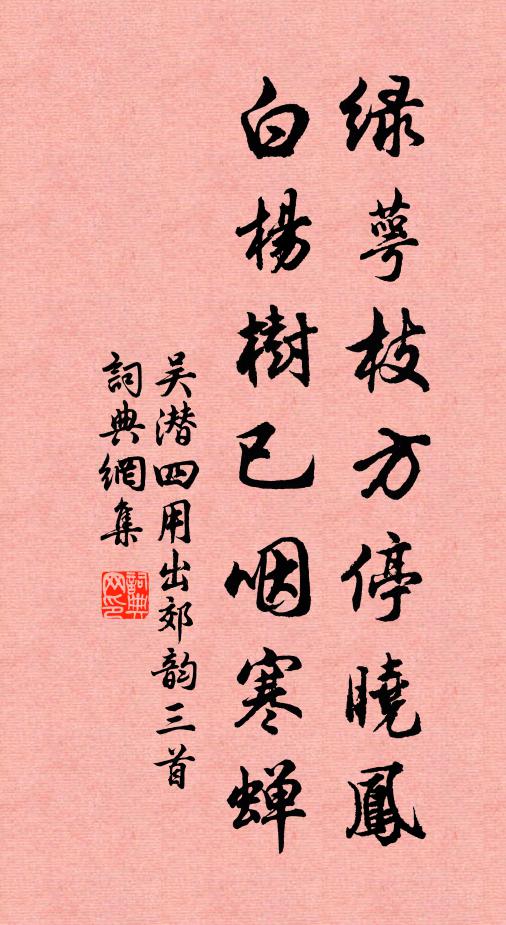 绿萼枝方停曉鳳
白楊樹已咽寒蝉
吴潜四用出郊韵三首
詞典網集
詞典网印